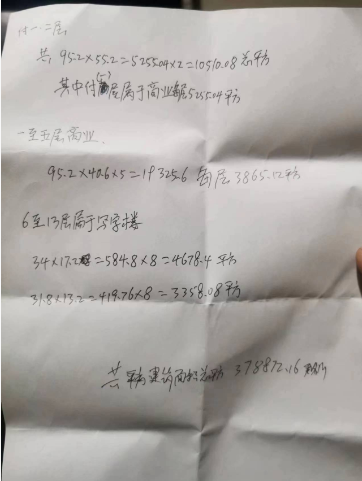 付一.二层
共 95.2×55.2=5255.04×2=10510.08总平方
其中付(5)层属于商业层5255.04平方
一至五层商业.
95.2×40.6×5=19325.6 每层3865.12平方
6至13层属于写字楼
34×17.2=584.8×8=4678.4平方
31.8×13.2=419.76×8=3358.08平方
共 建筑面积总 378872.16